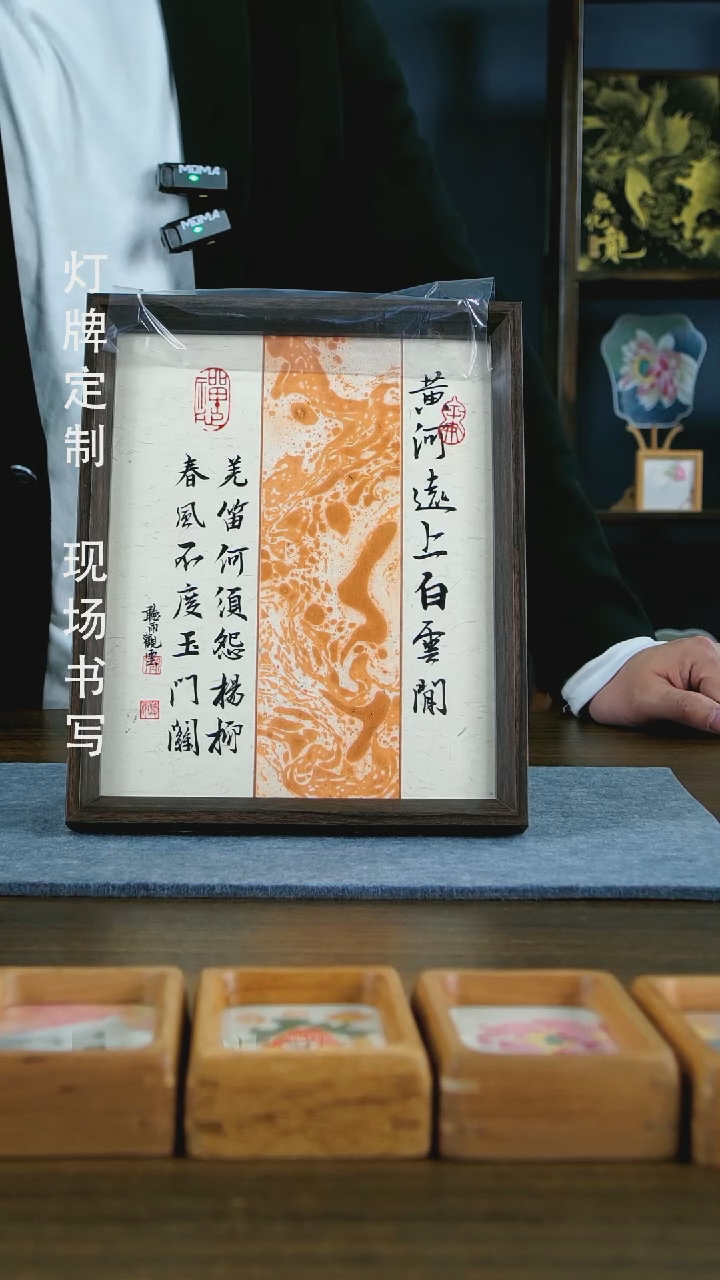 灯牌定制 现场书写
MOMA
MOMA
黃河遠上白雲閒
羌笛何須怨楊柳
春風不度玉門關
聽雨觀雲